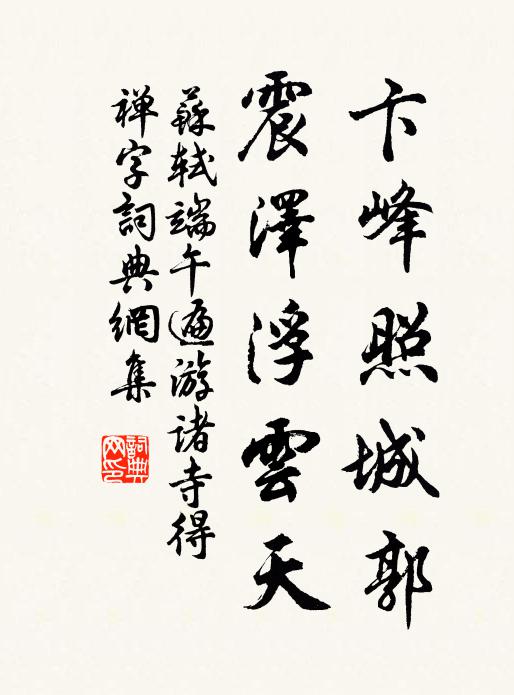 卞峰照城郭
震澤浮雲天
蘇軾端午遍游諸寺得
禅字詞典網集
詞典網印